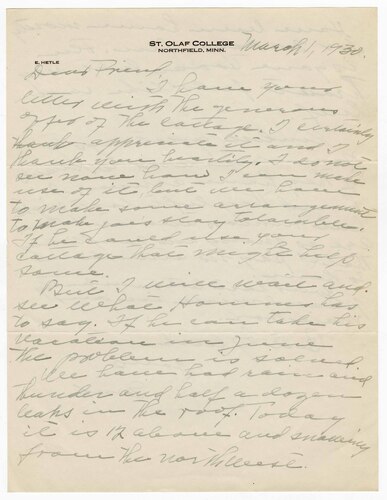 St. Olaf College
Northfield, Minn.
E. Hetle
March 1, 1930.
Dear Friend,
I have your
letter with the generous
offer of the cottage. I certainly
appreciate it and I
thank you heartily. I do not
see now how I can make
use of it but we have
to make some arrangement
to make
If he could use your
cottage that might help
some.
But I will wait and
see what Hommes has
to say. If he can take his
vacation in June
the problem is solved.
We have had rain and
thunder and half a dozen
leaks in the roof. Today
it is 12 above and snowing
from the northwest.